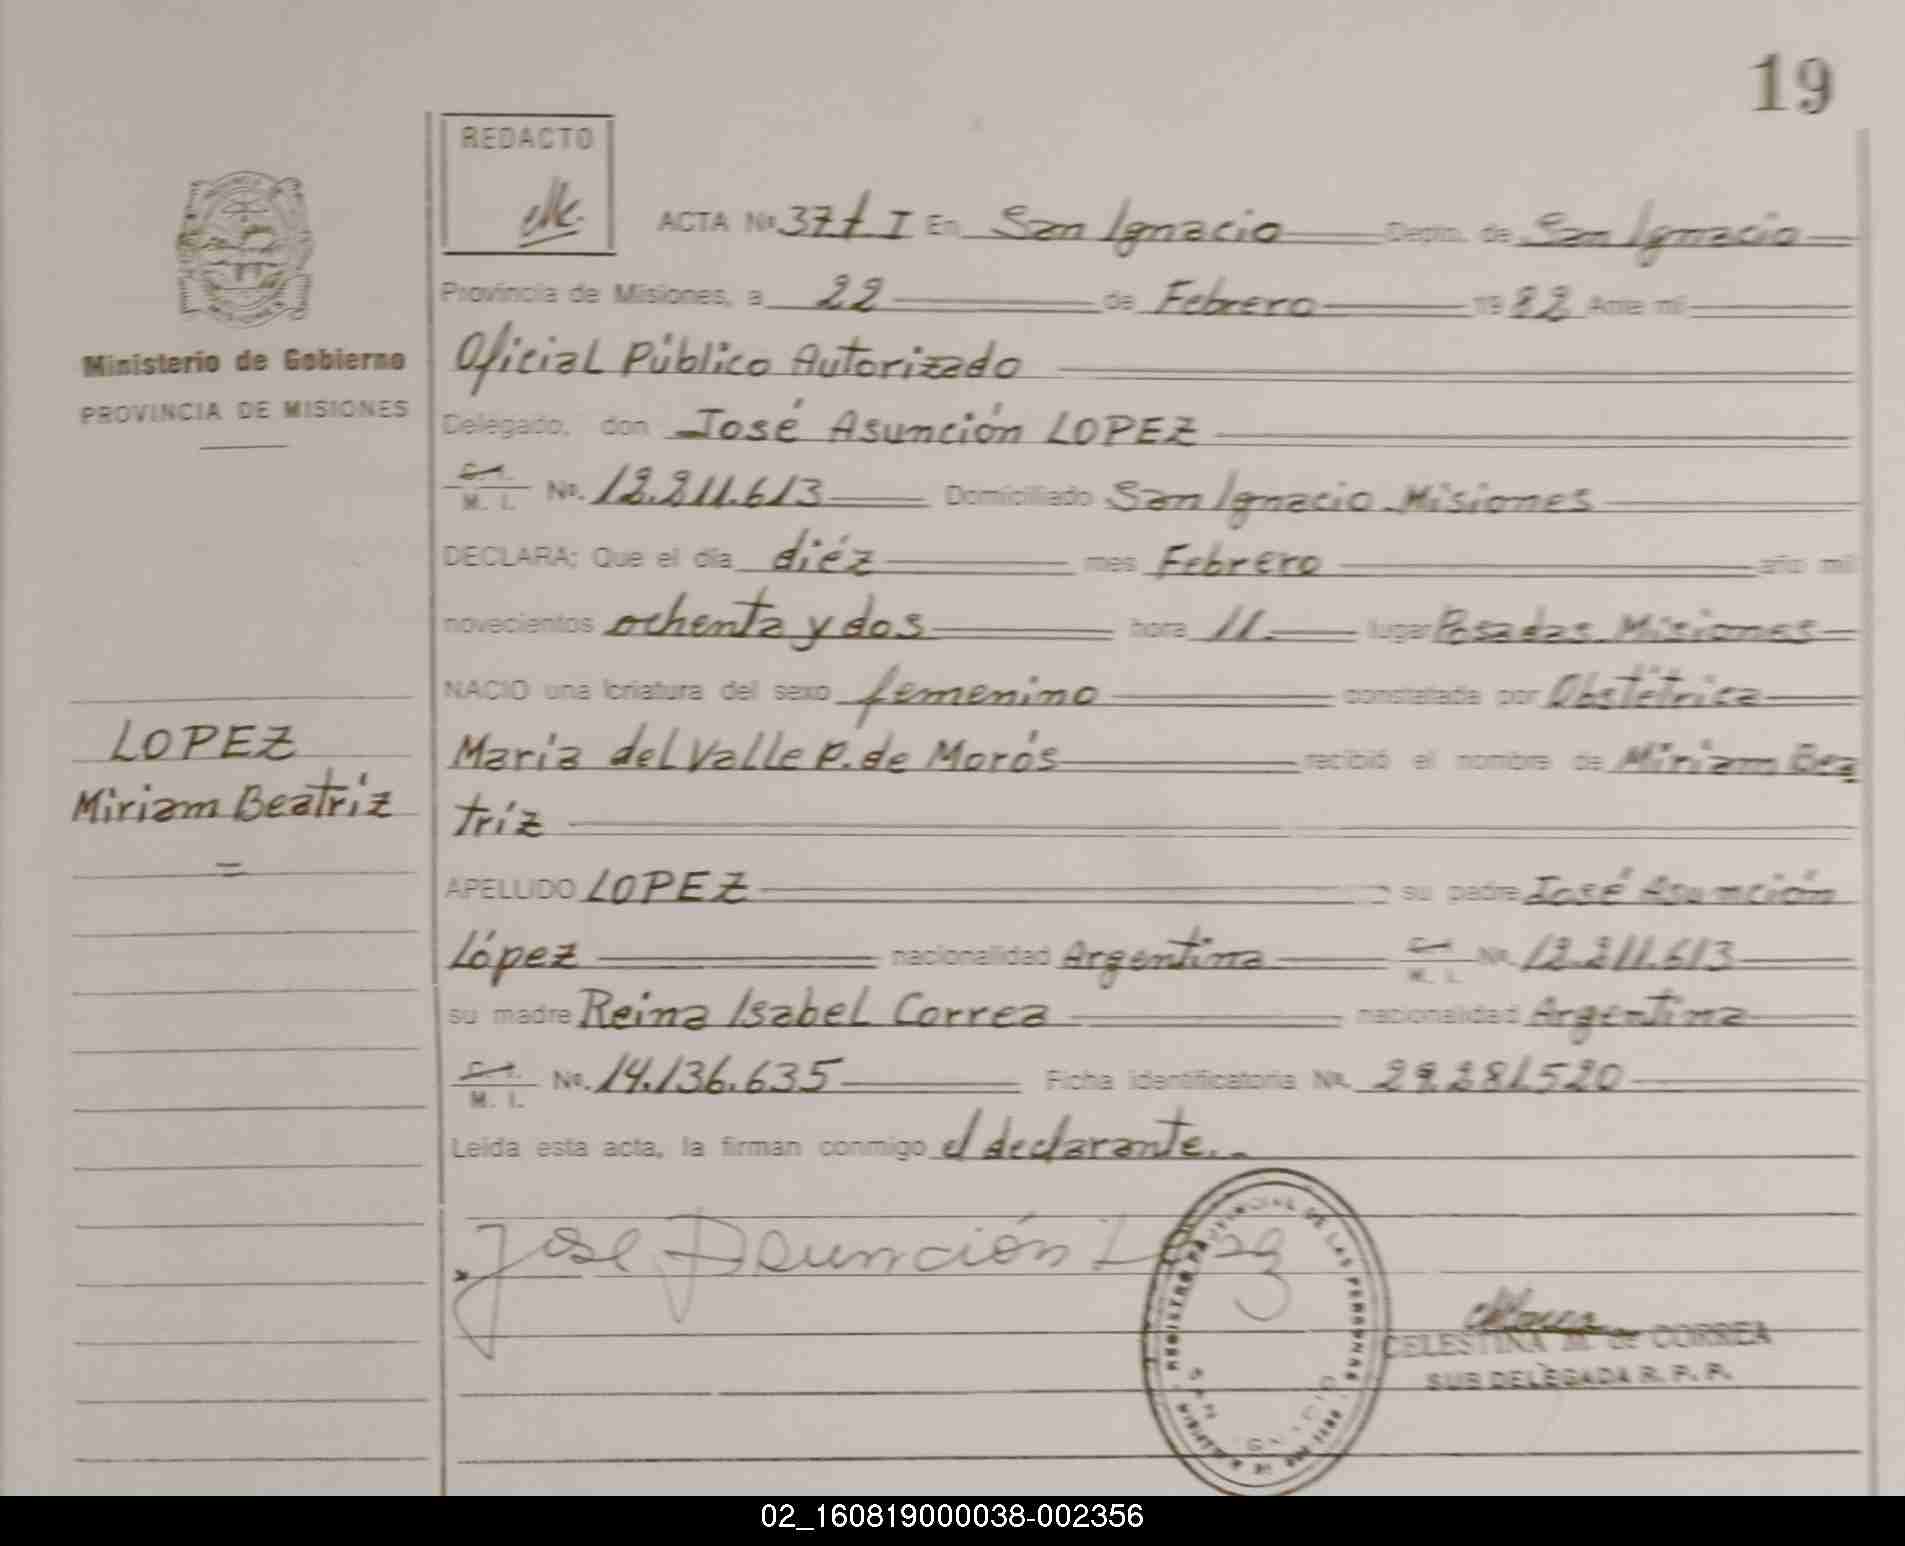 19
REDACTO
ACTA Nº 377 I En San Ignacio Depto. de San Ignacio
Provincia de Misiones, a 22 de Febrero 1982 Ante mi
Oficial Público Autorizado
Delegado, don José Asunción LOPEZ
C.I. M. I. No. 12.211.613 Domiciliado San Ignacio Misiones
DECLARA; Que el día diéz mes Febrero año mil
novecientos ochenta y dos hora 11. lugar Posadas Misiones
NACIO una criatura del sexo femenino constatada por Obstétrica
Maria del Valle P. de Morós recibió el nombre de Miriam Bea
triz
APELLIDO LOPEZ su padre José Asunción
López nacionalidad Argentina C.I. M. I. No. 12.211.613
su madre Reina Isabel Correa nacionalidad Argentina
C.I. M. I. No. 14.136.635 Ficha identificatoria No. 29.281.520
Leída esta acta, la firman conmigo el declarante.-
Ministerio de Gobierno
PROVINCIA DE MISIONES
LOPEZ
Miriam Beatriz
=
Jose Asunción Lopez
REGISTRO PROVINCIAL DE LAS PERSONAS
CELESTINA M. de CORREA
SUB DELEGADA R. P. P.
02_160819000038-002356